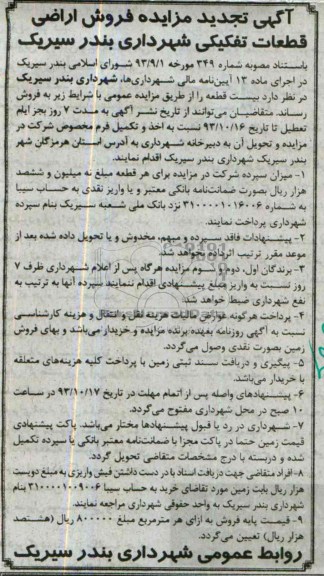 آگهی تجدید مزایده فروش اراضی
قطعات تفکیکی شهرداری بندر سیریک
باستناد مصوبه شماره ۳۴۹ مورخه ۹۳/۹/۱ شورای اسلامی بندر سیریک
در اجرای ماده ۱۳ آیین‌نامه مالی شهرداری‌ها، شهرداری بندر سیریک
در نظر دارد بیست قطعه را از طریق مزایده عمومی با شرایط زیر به فروش
رساند. متقاضیان می‌توانند از تاریخ نشر آگهی به مدت ۷ روز بجز ایام
تعطیل تا تاریخ ۹۳/۱۰/۱۶ نسبت به اخذ و تکمیل فرم مخصوص شرکت در
مزایده و تحویل آن به دبیرخانه شهرداری به آدرس استان هرمزگان شهر
بندر سیریک شهرداری بندر سیریک اقدام نمایند.
۱- میزان سپرده شرکت در مزایده برای هر قطعه مبلغ نه میلیون و ششصد
هزار ریال بصورت ضمانت‌نامه بانکی معتبر و یا واریز نقدی به حساب سیبا
به شماره ۳۱۰۰۰۰۱۰۱۶۰۰۶ نزد بانک ملی شعبه سیریک بنام سپرده
شهرداری پرداخت نمایند.
۲- پیشنهادات فاقد سپرده و مبهم، مخدوش و یا تحویل داده شده بعد از
موعد مقرر ترتیب اثر داده نخواهد شد.
۳- برندگان اول، دوم و سوم مزایده هرگاه پس از اعلام شهرداری ظرف ۷
روز نسبت به واریز مبلغ پیشنهادی اقدام ننمایند سپرده آنها به ترتیب به
نفع شهرداری ضبط خواهد شد.
۴- پرداخت هرگونه عوارض مالیات هزینه نقل و انتقال و هزینه کارشناسی
نسبت به آگهی روزنامه بعهده برنده مزایده و خریدار می‌باشد و بهای فروش
زمین بصورت نقدی وصول می‌گردد.
۵- پیگیری و دریافت سند ثبتی زمین با پرداخت کلیه هزینه‌های متعلقه
با خریدار می‌باشد.
۶- پیشنهادهای واصله پس از اتمام مهلت در تاریخ ۹۳/۱۰/۱۷ در ساعت
۱۰ صبح در محل شهرداری مفتوح می‌گردد.
۷- شهرداری در رد یا قبول پیشنهادها مختار می‌باشد. پاکت پیشنهادی
قیمت زمین حتما در پاکت مجزا با ضمانت‌نامه معتبر بانکی یا سپرده تکمیل
شده و دربسته با درج مشخصات متقاضی تحویل گردد.
۸- افراد متقاضی جهت دریافت اسناد با در دست داشتن فیش واریزی به مبلغ دویست
هزار ریال بابت زمین مورد تقاضای خرید به حساب سیبا ۳۱۰۰۰۰۱۰۰۹۰۰۶ بنام
شهرداری بندر سیریک به واحد حقوقی شهرداری مراجعه نمایند.
۹- قیمت پایه فروش به ازای هر مترمربع مبلغ ۸۰۰۰۰۰ ریال (هشتصد
هزار ریال) تعیین می‌گردد.
روابط عمومی شهرداری بندر سیریک